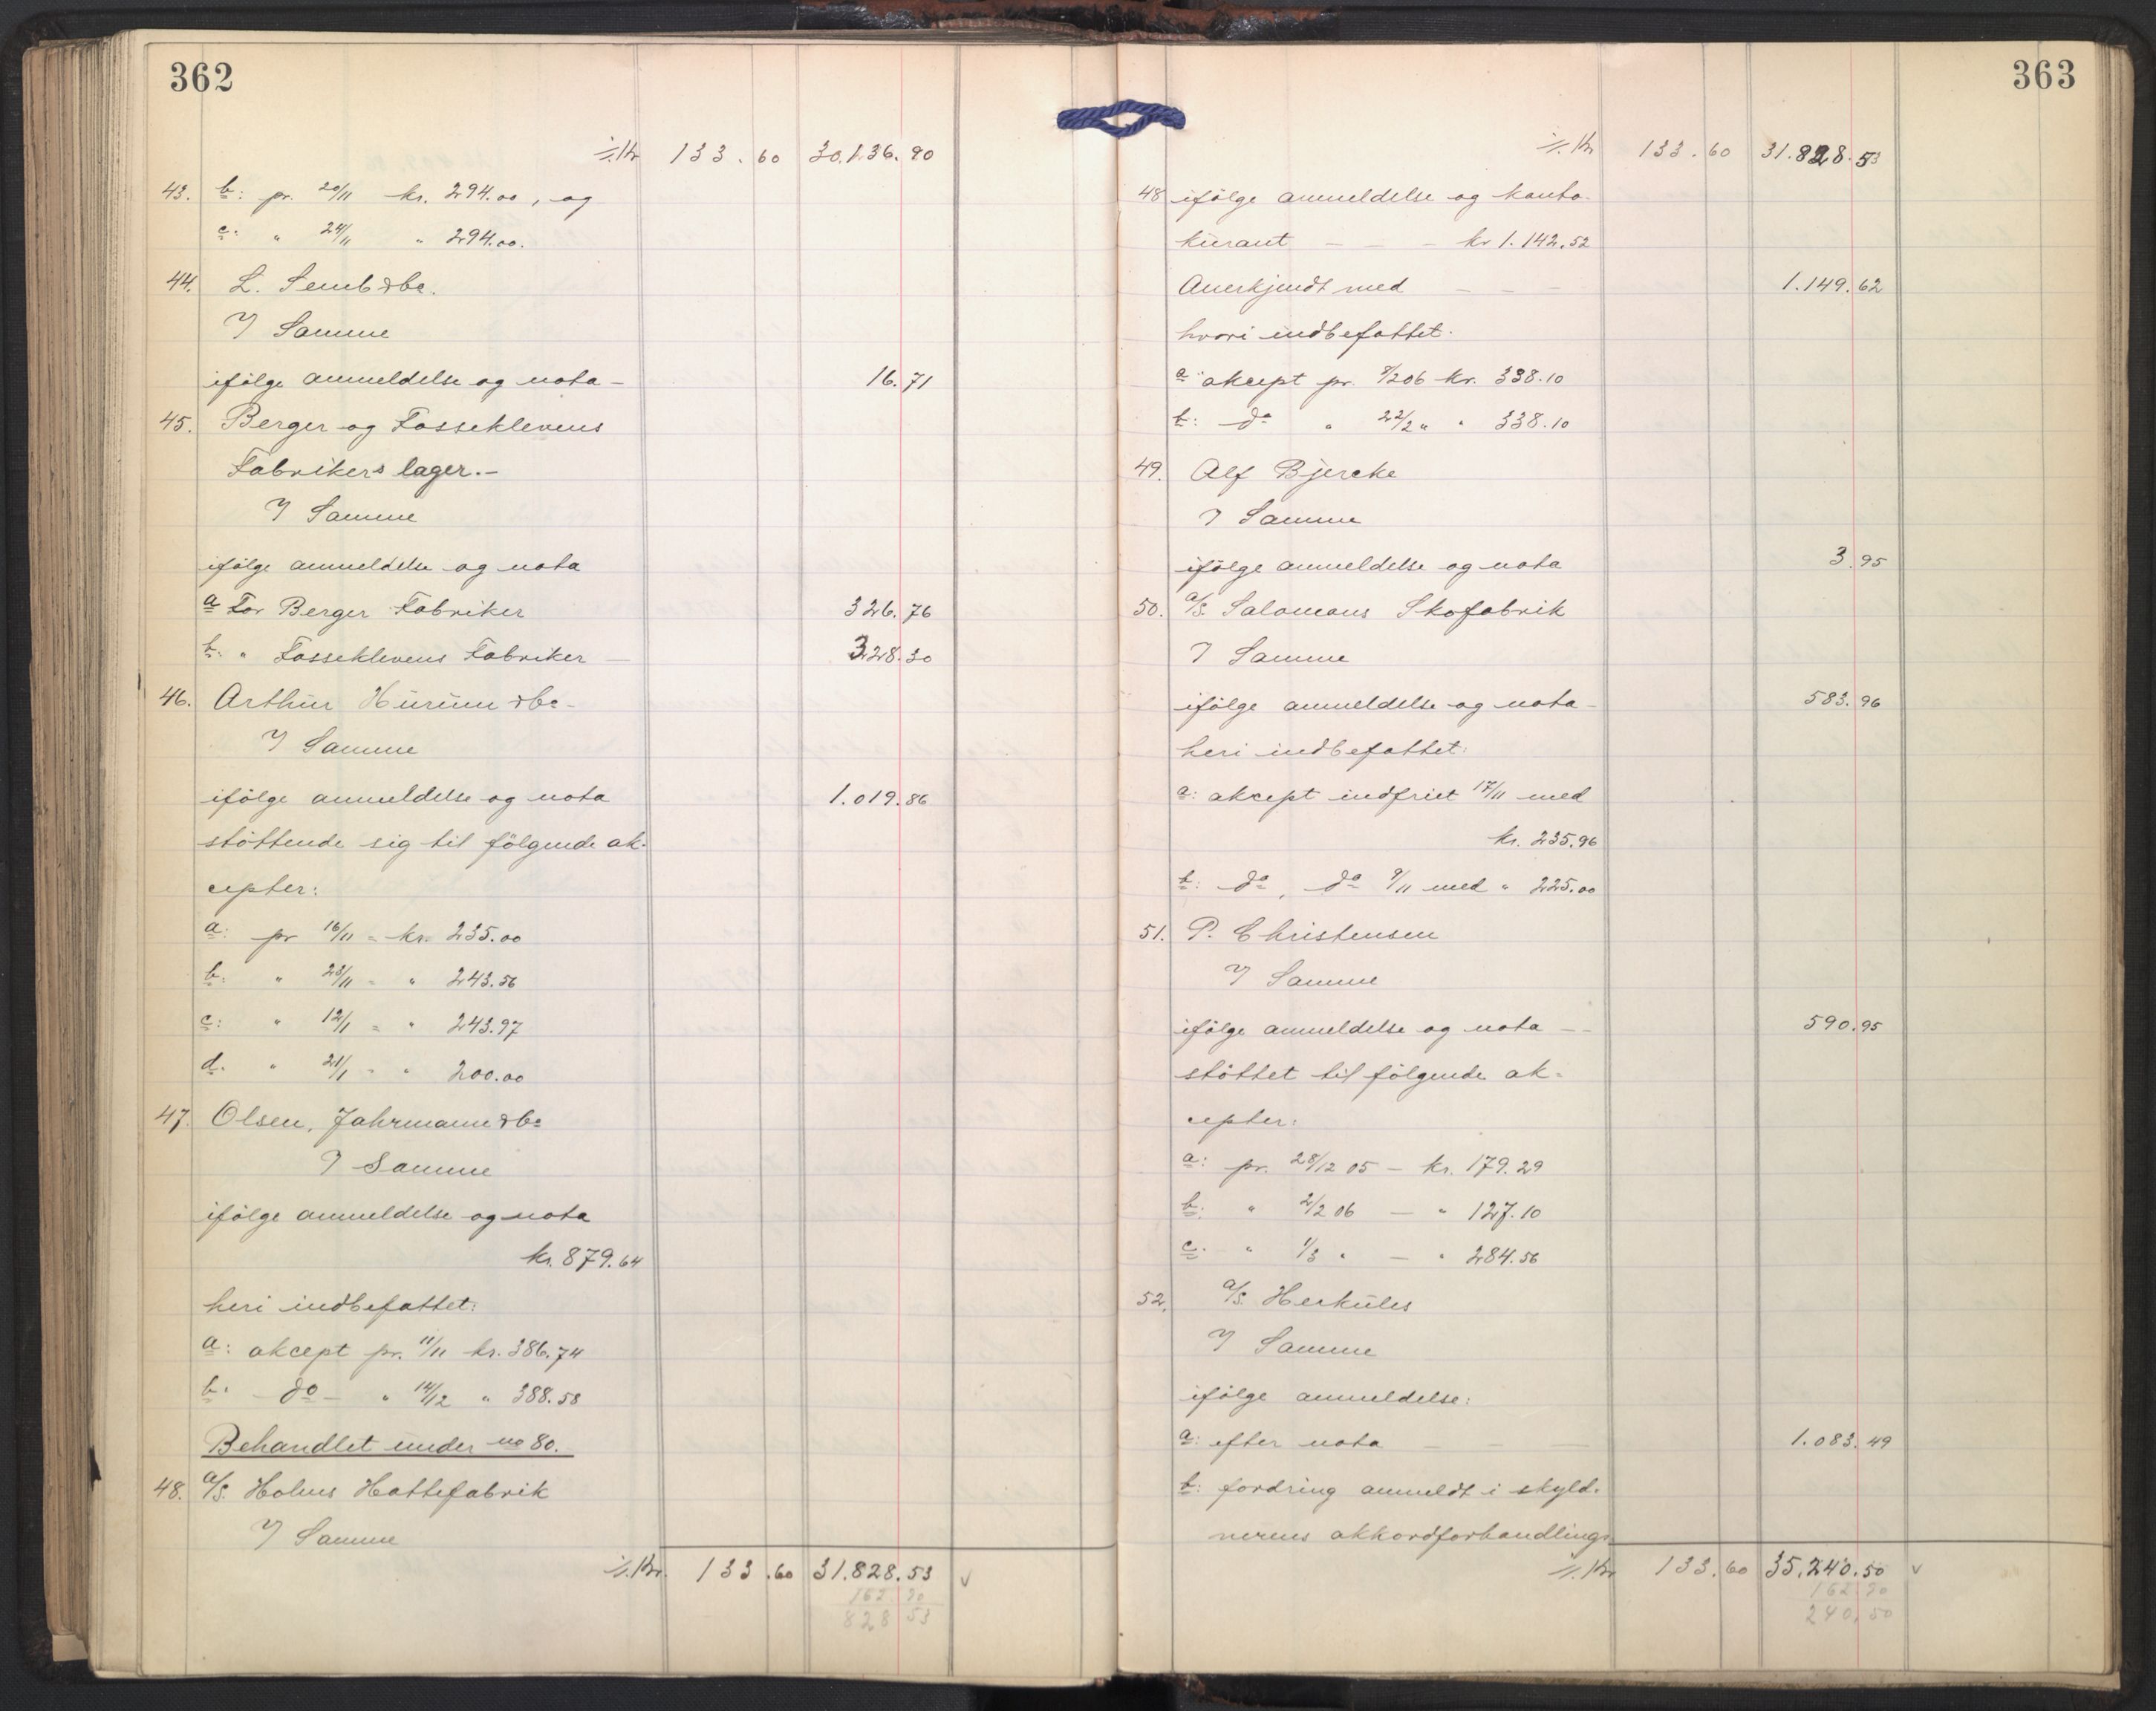 362
÷ Kr 133.60 30.136.90
43. b: pr. 20/11 kr. 294.00, og
c: " 24/11 " 294.00.
44. L. Semb & Co.
I Samme
ifølge anmeldelse og nota – 16.71
45. Berger og Fosseklevens
Fabrikers lager.–
I Samme
ifølge anmeldelse og nota
a For Berger Fabriker 326.76
b: " Fosseklevens Fabriker – 328.30
46. Arthur Hurum & Co-
I Samme
ifølge anmeldelse og nota 1.019.86
støttende sig til følgende ak-
cepter:
a: pr 16/11 = kr. 235.00
b: " 23/11 = " 243.56
c: " 12/1 = " 243.97
d. " 21/1 - " 200.00
47. Olsen, Jahrmann & Co
I Samme
ifølge anmeldelse og nota
kr. 879.64
heri indbefattet:
a: akcept pr. 11/11 kr. 386.74
b: – do – " 14/12 " 388.58
Behandlet under no 80.
48. A/S. Holms Hattefabrik
I Samme
÷ Kr. 133.60 31.828.53 v
162 30
828 53
363
÷ Kr 133.60 31.828.53
48 ifølge anmeldelse og konto-
kurant – – – kr 1.142.52
Anerkjendt med – – – 1.149.62
hvori indbefattet:
a: akcept pr. 9/2 06 kr. 338.10
b: – do " 22/2 " " 338.10
49. Alf Bjercke
I Samme
ifølge anmeldelse og nota 3.95
50. A/S. Salomons Skofabrik
I Samme
ifølge anmeldelse og nota – 583.96
heri indbefattet:
a: akcept indfriet 17/11 med
kr. 235.96
b: do, do 9/11 med " 225.00
51. P. Christensen
I Samme
ifølge anmeldelse og nota – – 590.95
støttet til følgende ak-
cepter:
a: pr. 28/12 05 – kr. 179.29
b: " 2/2 06 – " 127.10
c. " 1/3 " – " 284.56
52. A/S. Herkules
I Samme
ifølge anmeldelse:
a: efter nota – – – 1.083.49
b: fordring anmeldt i skyld-
nerens akkordforhandlings-
÷ Kr 133.60 35.240.50 v
162 30
240,50